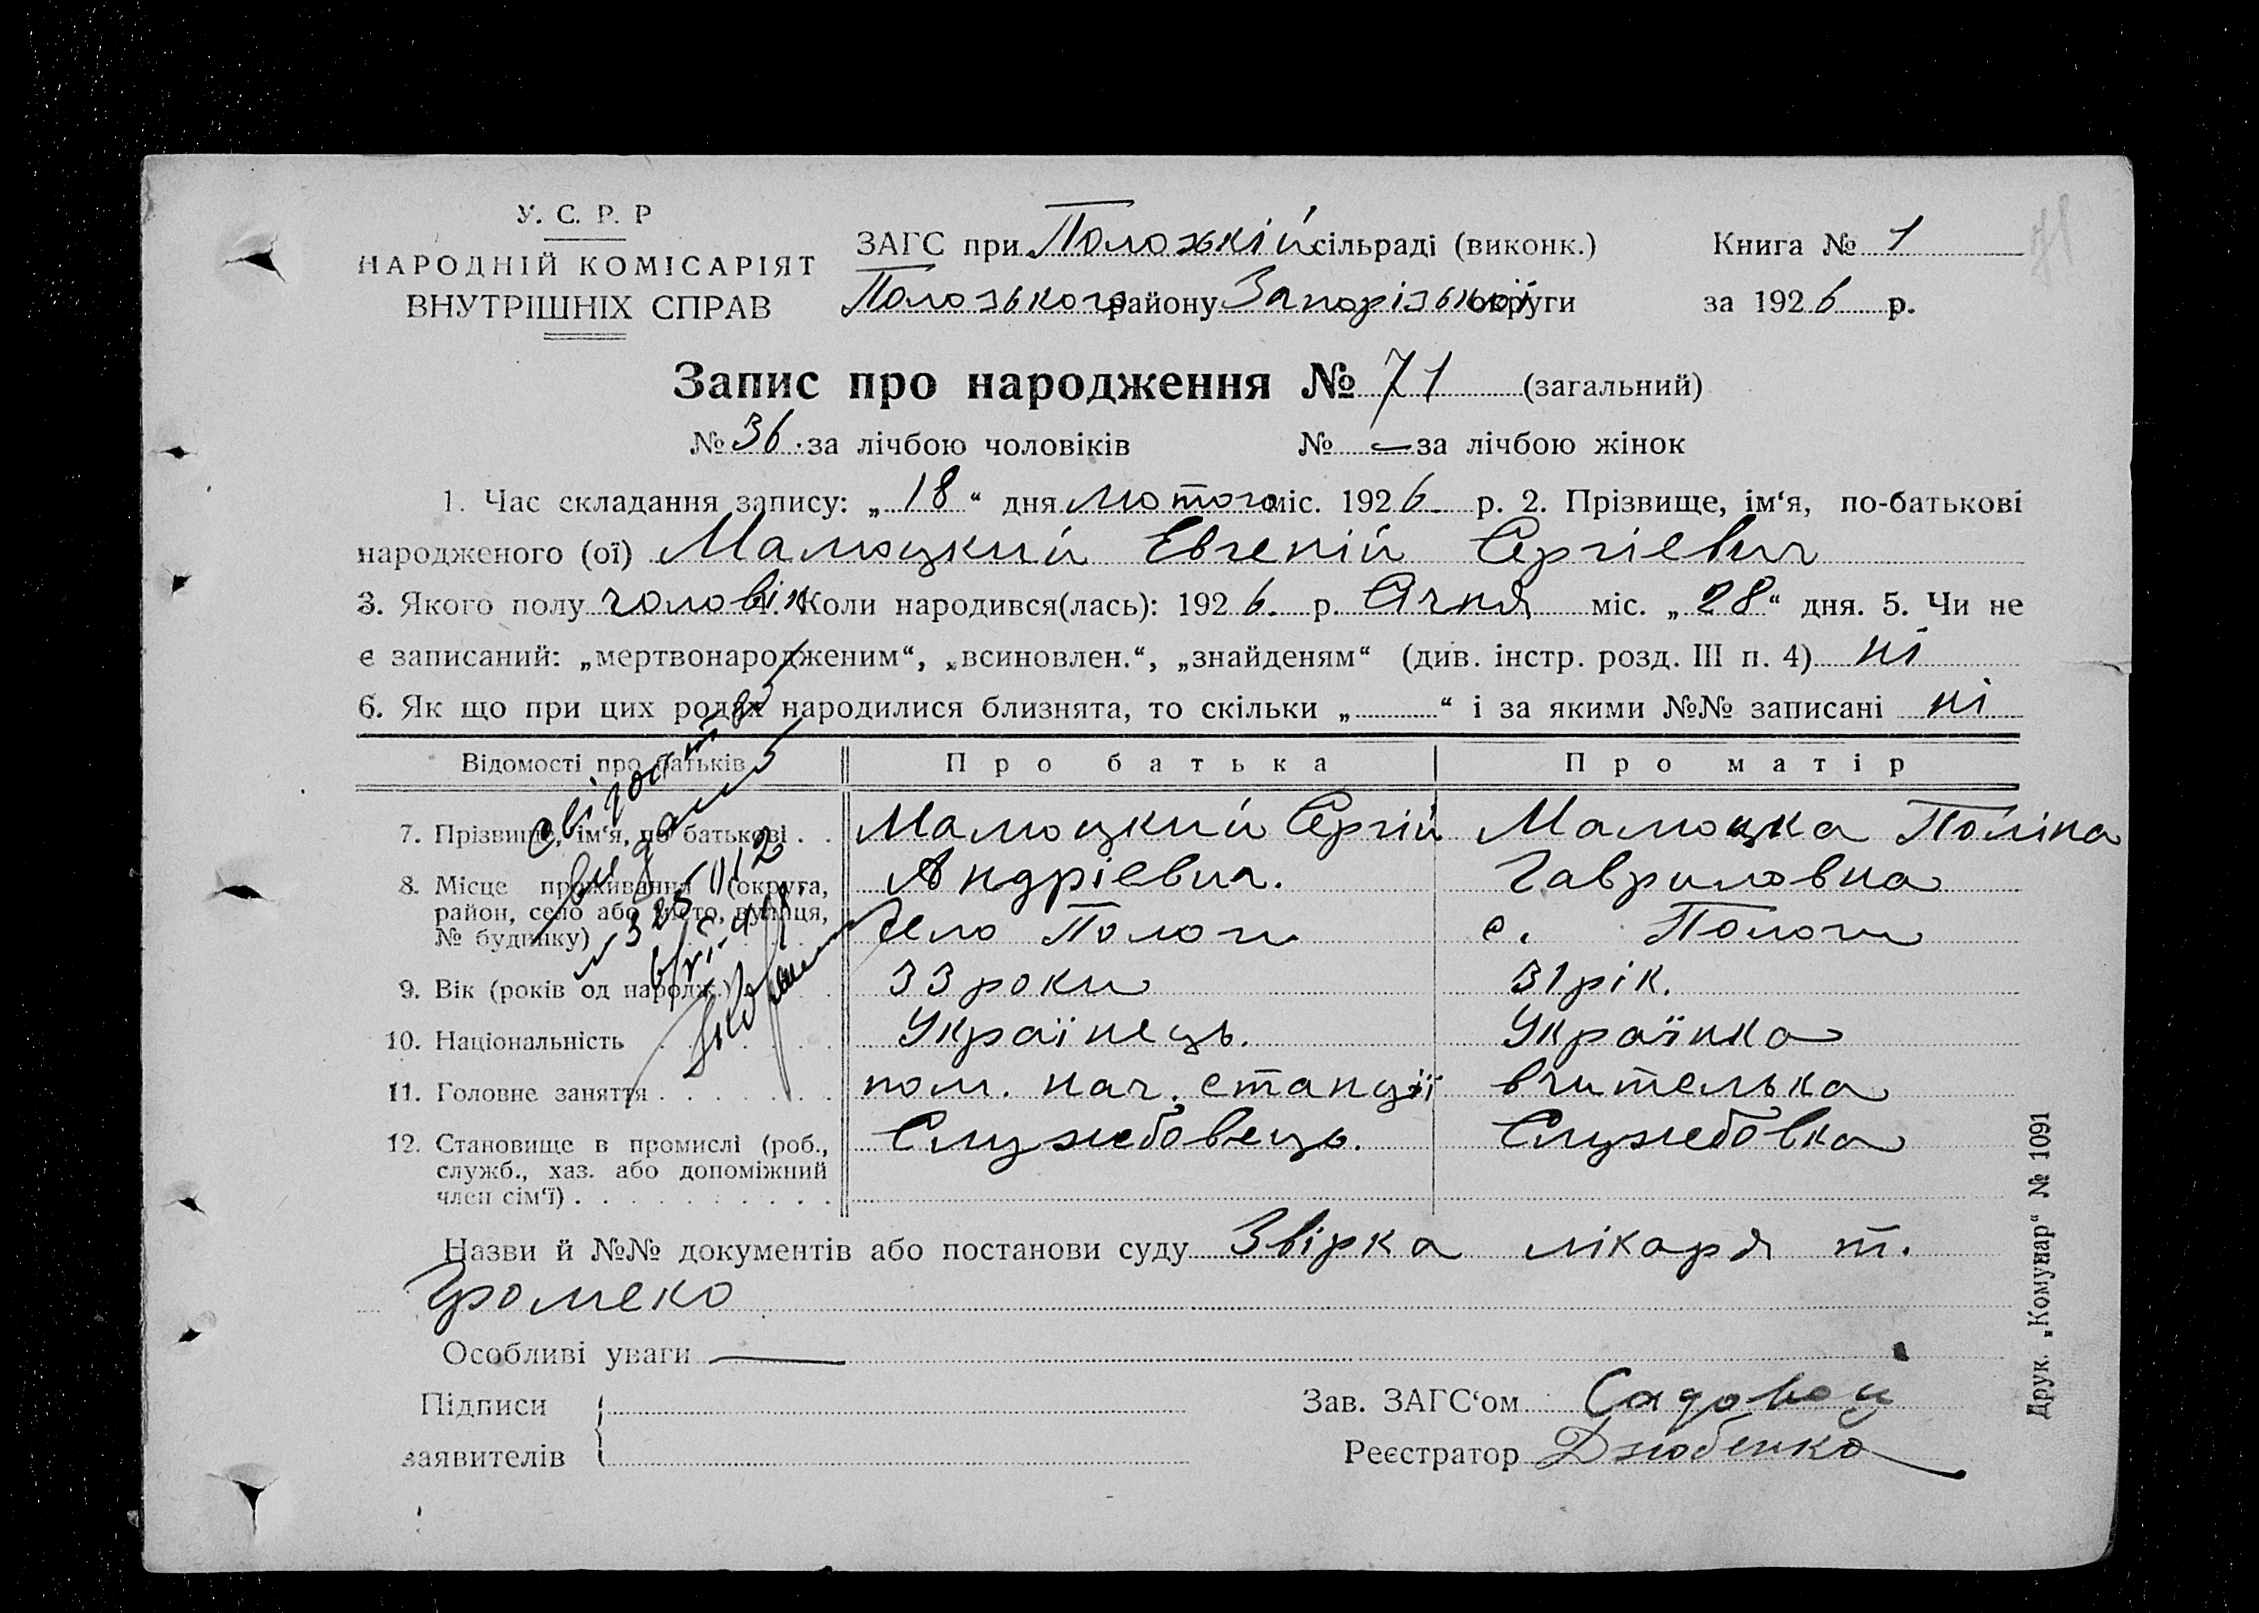 У. С. Р. Р
НАРОДНІЙ КОМІСАРІЯТ
ВНУТРІШНІХ СПРАВ
ЗАГС при Положкій сільраді (виконк.)
Полозького району Запорізької округи
Книга № 1
за 1926 р.
71
Запис про народження № 71 (загальний)
№ 36 за лічбою чоловіків № — за лічбою жінок
1. Час складання запису: „18“ дня Лютого міс. 1926 р. 2. Прізвище, ім‘я, по-батькові
народженого (ої) Малюцкий Евгеній Сергіевич
3. Якого полу чоловік 4. Коли народився(лась): 1926. р. Січня міс. „28“ дня. 5. Чи не
є записаний: „мертвонародженим“, „всиновлен.“, „знайденям“ (див. інстр. розд. III п. 4) ні
6. Як що при цих родах народилися близнята, то скільки „ “ і за якими №№ записані ні
Відомості про батьків Про батька Про матір
7. Прізвище, ім‘я, по батькові . . Малюцкий Сергій Малюцка Поліна
Андріевич. Гавриловна
8. Місце проживання (округа,
район, село або місто, вулиця,
№ будинку) село Пологи с. Пологи
9. Вік (років од народж.) 33 роки 31 рік.
10. Національність Українець. Українка
11. Головне заняття пом. нач. станції вчителька
12. Становище в промислі (роб.,
служб., хаз. або допоміжний
член сім‘ї) Служебовець. Служебовка
свідоцтво
видано
Назви й №№ документів або постанови суду Звірка лікаря т.
Громеко
Особливі уваги —
Підписи
заявителів
Зав. ЗАГС‘ом Садовой
Реєстратор Дзюбенко
Друк. „Комунар“ № 1091